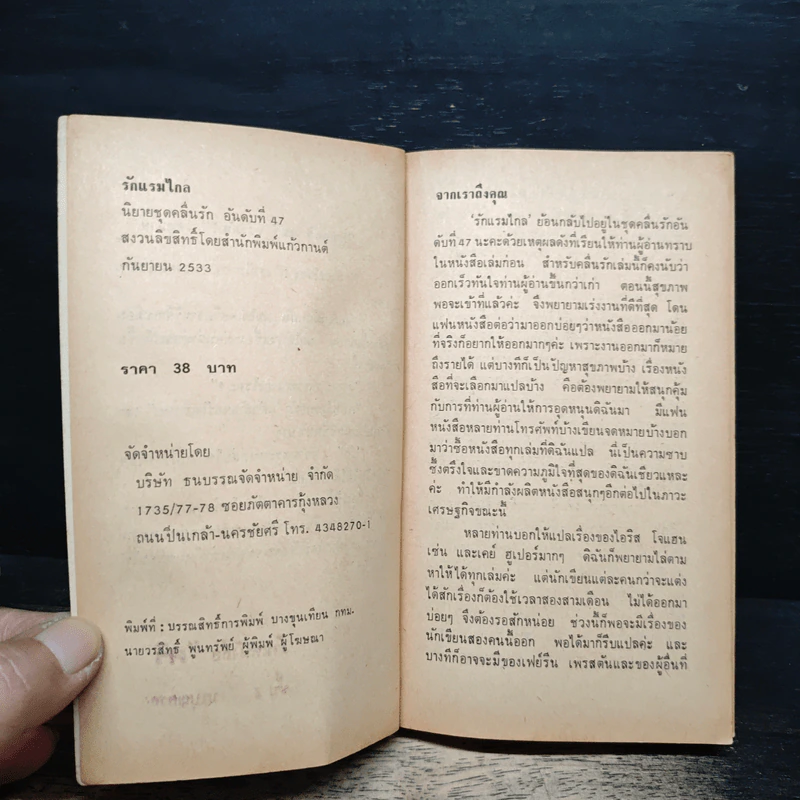 รักแรมไกล
นิยายชุดคลื่นรัก อันดับที่ 47
สงวนลิขสิทธิ์โดยสำนักพิมพ์แก้วกานต์
กันยายน 2533
ราคา 38 บาท
จัดจำหน่ายโดย
บริษัท ธนบรรณจัดจำหน่าย จำกัด
1735/77-78 ซอยภัตตาคารกุ้งหลวง
ถนนปิ่นเกล้า-นครชัยศรี โทร. 4348270-1
พิมพ์ที่ : บรรณสิทธิ์การพิมพ์ บางขุนเทียน กทม.
นายวรสิทธิ์ พูนทรัพย์ ผู้พิมพ์ ผู้โฆษณา
จากเราถึงคุณ
'รักแรมไกล' ย้อนกลับไปอยู่ในชุดคลื่นรักอัน
ดับที่ 47 นะคะด้วยเหตุผลดังที่เรียนให้ท่านผู้อ่านทราบ
ในหนังสือเล่มก่อน สำหรับคลื่นรักเล่มนี้ก็คงนับว่า
ออกเร็วทันใจท่านผู้อ่านขึ้นกว่าเก่า ตอนนี้สุขภาพ
พอจะเข้าที่แล้วค่ะ จึงพยายามเร่งงานที่ดีที่สุด โดน
แฟนหนังสือต่อว่ามาออกบ่อยๆว่าหนังสือออกมาน้อย
ที่จริงก็อยากให้ออกมากๆค่ะ เพราะงานออกมาก็หมาย
ถึงรายได้ แต่บางทีก็เป็นปัญหาสุขภาพบ้าง เรื่องหนัง
สือที่จะเลือกมาแปลบ้าง คือต้องพยายามให้สนุกคุ้ม
กับการที่ท่านผู้อ่านให้การอุดหนุนดิฉันมา มีแฟน
หนังสือหลายท่านโทรศัพท์บ้างเขียนจดหมายบ้างบอก
มาว่าซื้อหนังสือทุกเล่มที่ดิฉันแปล นี่เป็นความซาบ
ซึ้งตรึงใจและขาดความภูมิใจที่สุดของดิฉันเชียวแหละ
ค่ะ ทำให้มีกำลังผลิตหนังสือสนุกๆอีกต่อไปในภาวะ
เศรษฐกิจขณะนี้
หลายท่านบอกให้แปลเรื่องของไอริส โจแฮน
เซ่น และเคย์ ฮูเปอร์มากๆ ดิฉันก็พยายามไล่ตาม
หาให้ได้ทุกเล่มค่ะ แต่นักเขียนแต่ละคนกว่าจะแต่ง
ได้สักเรื่องก็ต้องใช้เวลาสองสามเดือน ไม่ได้ออกมา
บ่อยๆ จึงต้องรอสักหน่อย ช่วงนี้ก็พอจะมีเรื่องของ
นักเขียนสองคนนี้ออก พอได้มาก็รีบแปลค่ะ และ
บางทีก็อาจจะมีของเฟย์รีน เพรสตันและของผู้อื่นที่